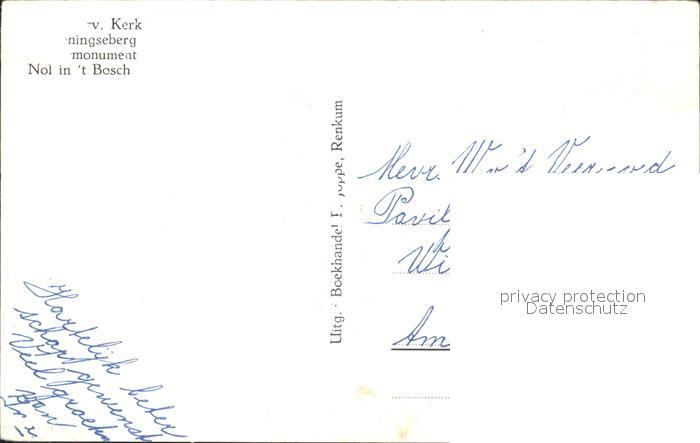 -v. Kerk
ningseberg
monument
Nol in 't Bosch
Uitg.: Boekhandel Joppe, Renkum
Mevr. W v 't
Pavil
Wi
Am
privacy protection
Datenschutz
Hartelijk beter
schap gewenst
Veel groeten